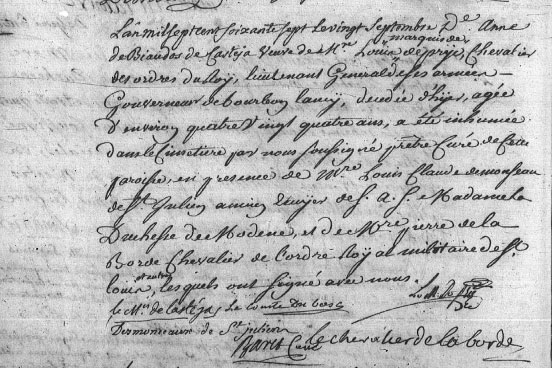 L'an mil sept cent soixante sept le vingt Septembre De Anne
marquis de
de Biaudos de Casteja veuve de Mre Louis de prie, Chevalier
des ordres du Roy, lieutenant General de ses armées
Gouverneur de bourbon lancy, decedée d'hyer, agée
d'environ quatre vingt quatre ans, a été inhumée
dans le Cimetiere par nous soussigné prêtre Curé de Cette
paroisse, en presence de Mre Louis Claude
de St Julien ancien Ecuyer de S. A. S. Madame la
Duchesse de Modene, et de Mre pierre de la
Borde Chevalier de l'ordre Royal militaire de St
louis, et autres les quels ont signé avec nous
le Mis de Casteja Le Comte Du
de St julien
Curé le chevalier de la borde